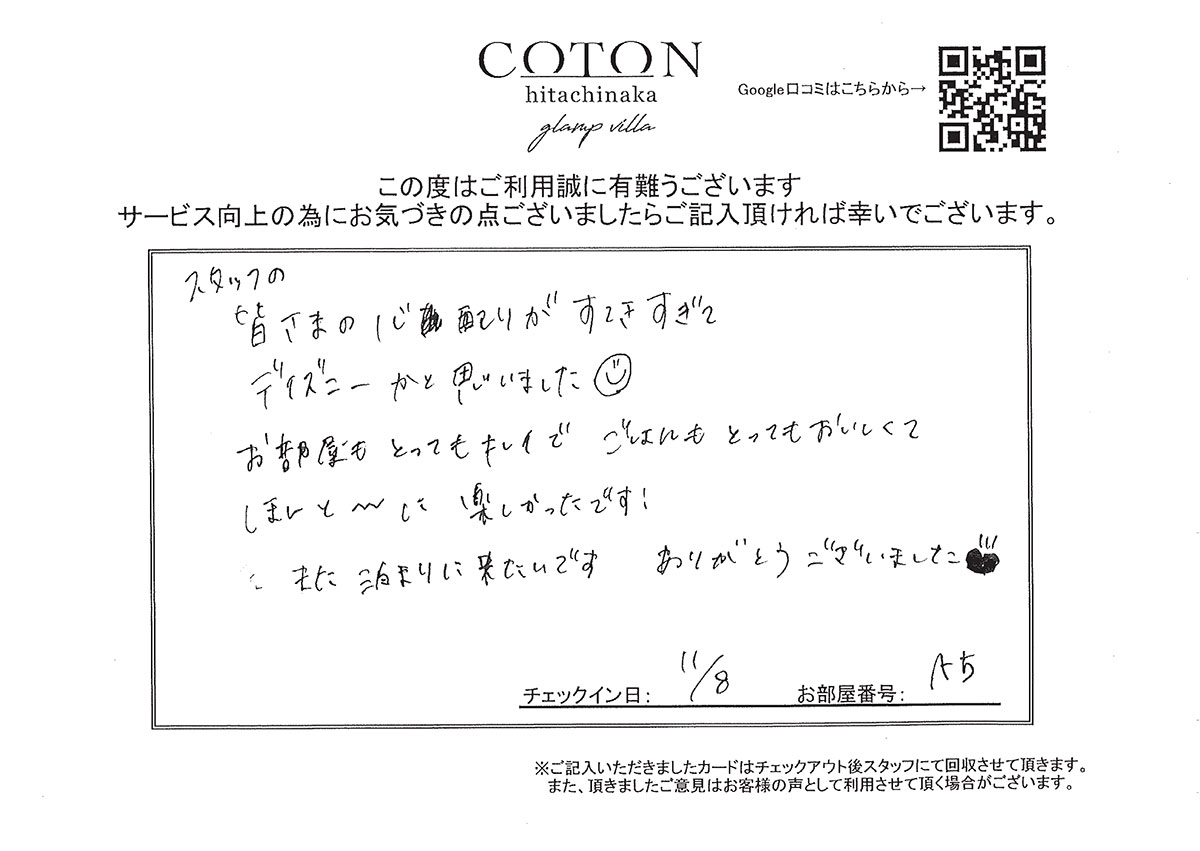 COTON
hitachinaka
glamp villa
Google口コミはこちらから→
この度はご利用誠に有難うございます
サービス向上の為にお気づきの点ございましたらご記入頂ければ幸いでございます。
スタッフの
皆さまの心配りがすてきすぎて
ディズニーかと思いました
お部屋もとってもキレイで ごはんもとってもおいしくて
ほんと〜に楽しかったです!
また泊まりに来たいです ありがとうございました
チェックイン日: 11/8 お部屋番号: A5
※ご記入いただきましたカードはチェックアウト後スタッフにて回収させて頂きます。
また、頂きましたご意見はお客様の声として利用させて頂く場合がございます。